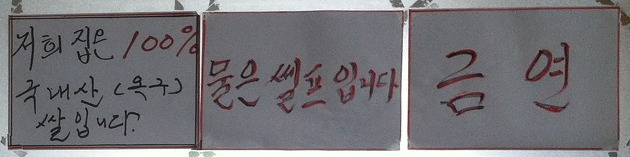 저희 집은 100%
국내산 (옥구)
쌀입니다.
물은 쎌프입니다
금연